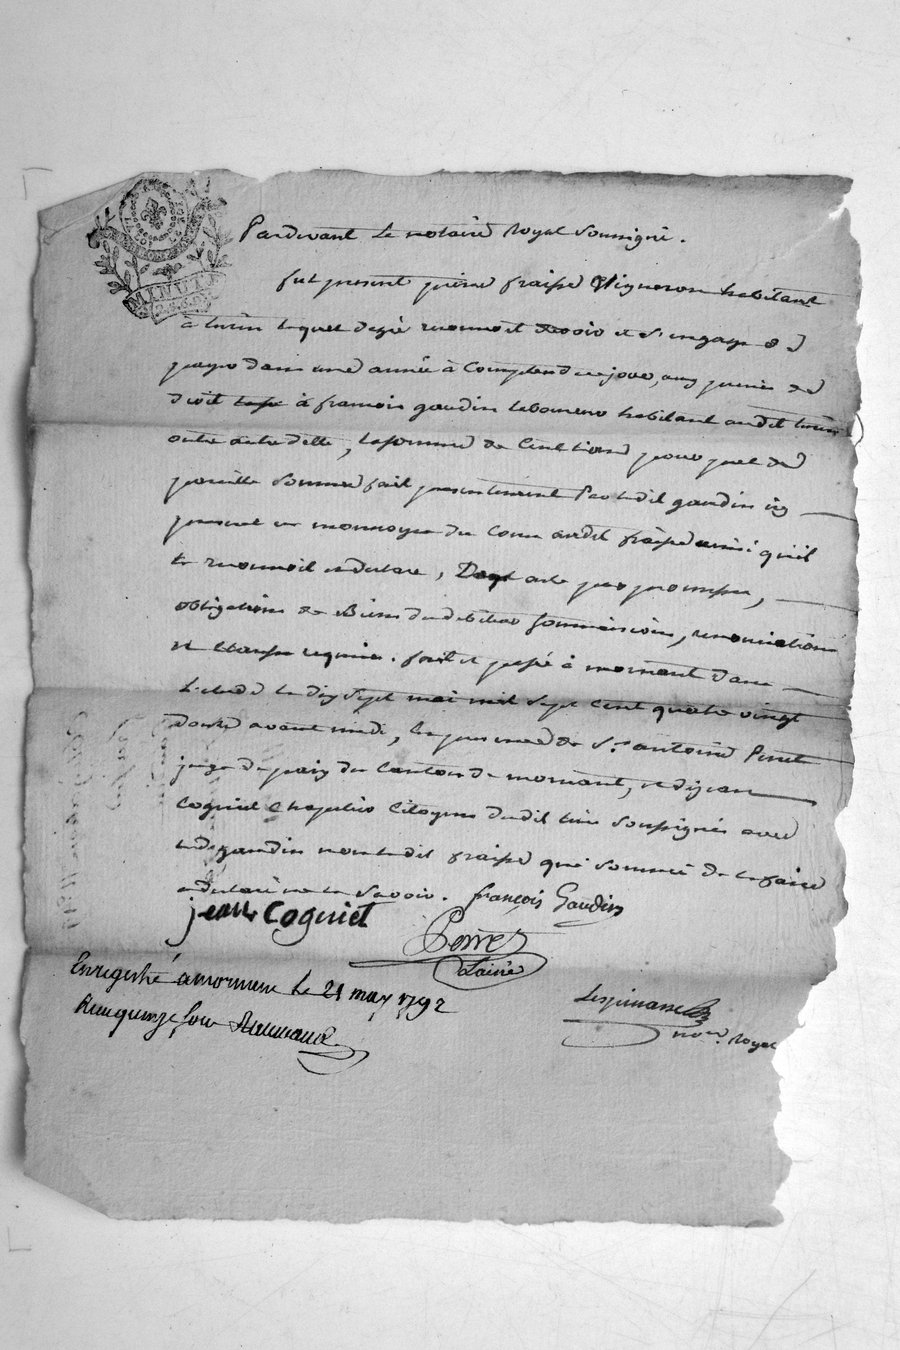 MINUTE
Pardevant Le notaire Royal Soussigné.
fut present pierre fraisse Vigneron habitant
à turin lequel de gré reconnoit devoir et s'engage de
payer dans une année à Compter de ce jour, aux peines de
droit à françois gaudin laboureur habitant audit turin
autre dette, la somme de Cent livres pour pret de
pareille Somme fait presentement Par ledit gaudin icy
present en monnoye du Cours audit fraisse ainsi qu'il
le reconnoit et declare, Dont acte par promesse,
obligations de Biens du debiteur Soumissions, renonciations
et clause requise. fait et passé à mornant dans
l'etude le dix Sept mai mil Sept Cent quatre vingt
douze avant midi, En presence de Sr. antoine Perret
juge de paix du Canton de mornant, et de jean
Cogniet Chapelier Citoyens dudit lieu Soussignés avec
ledit gaudin non ledit fraisse qui Sommé de le faire
a declaré ne le Savoir. françois Gaudin
jean Cogniet
Perret
Lainé
Enregistré a mornant Le 21 may 1792
Reçu quinze sous
Lespinasse
nore. Royal